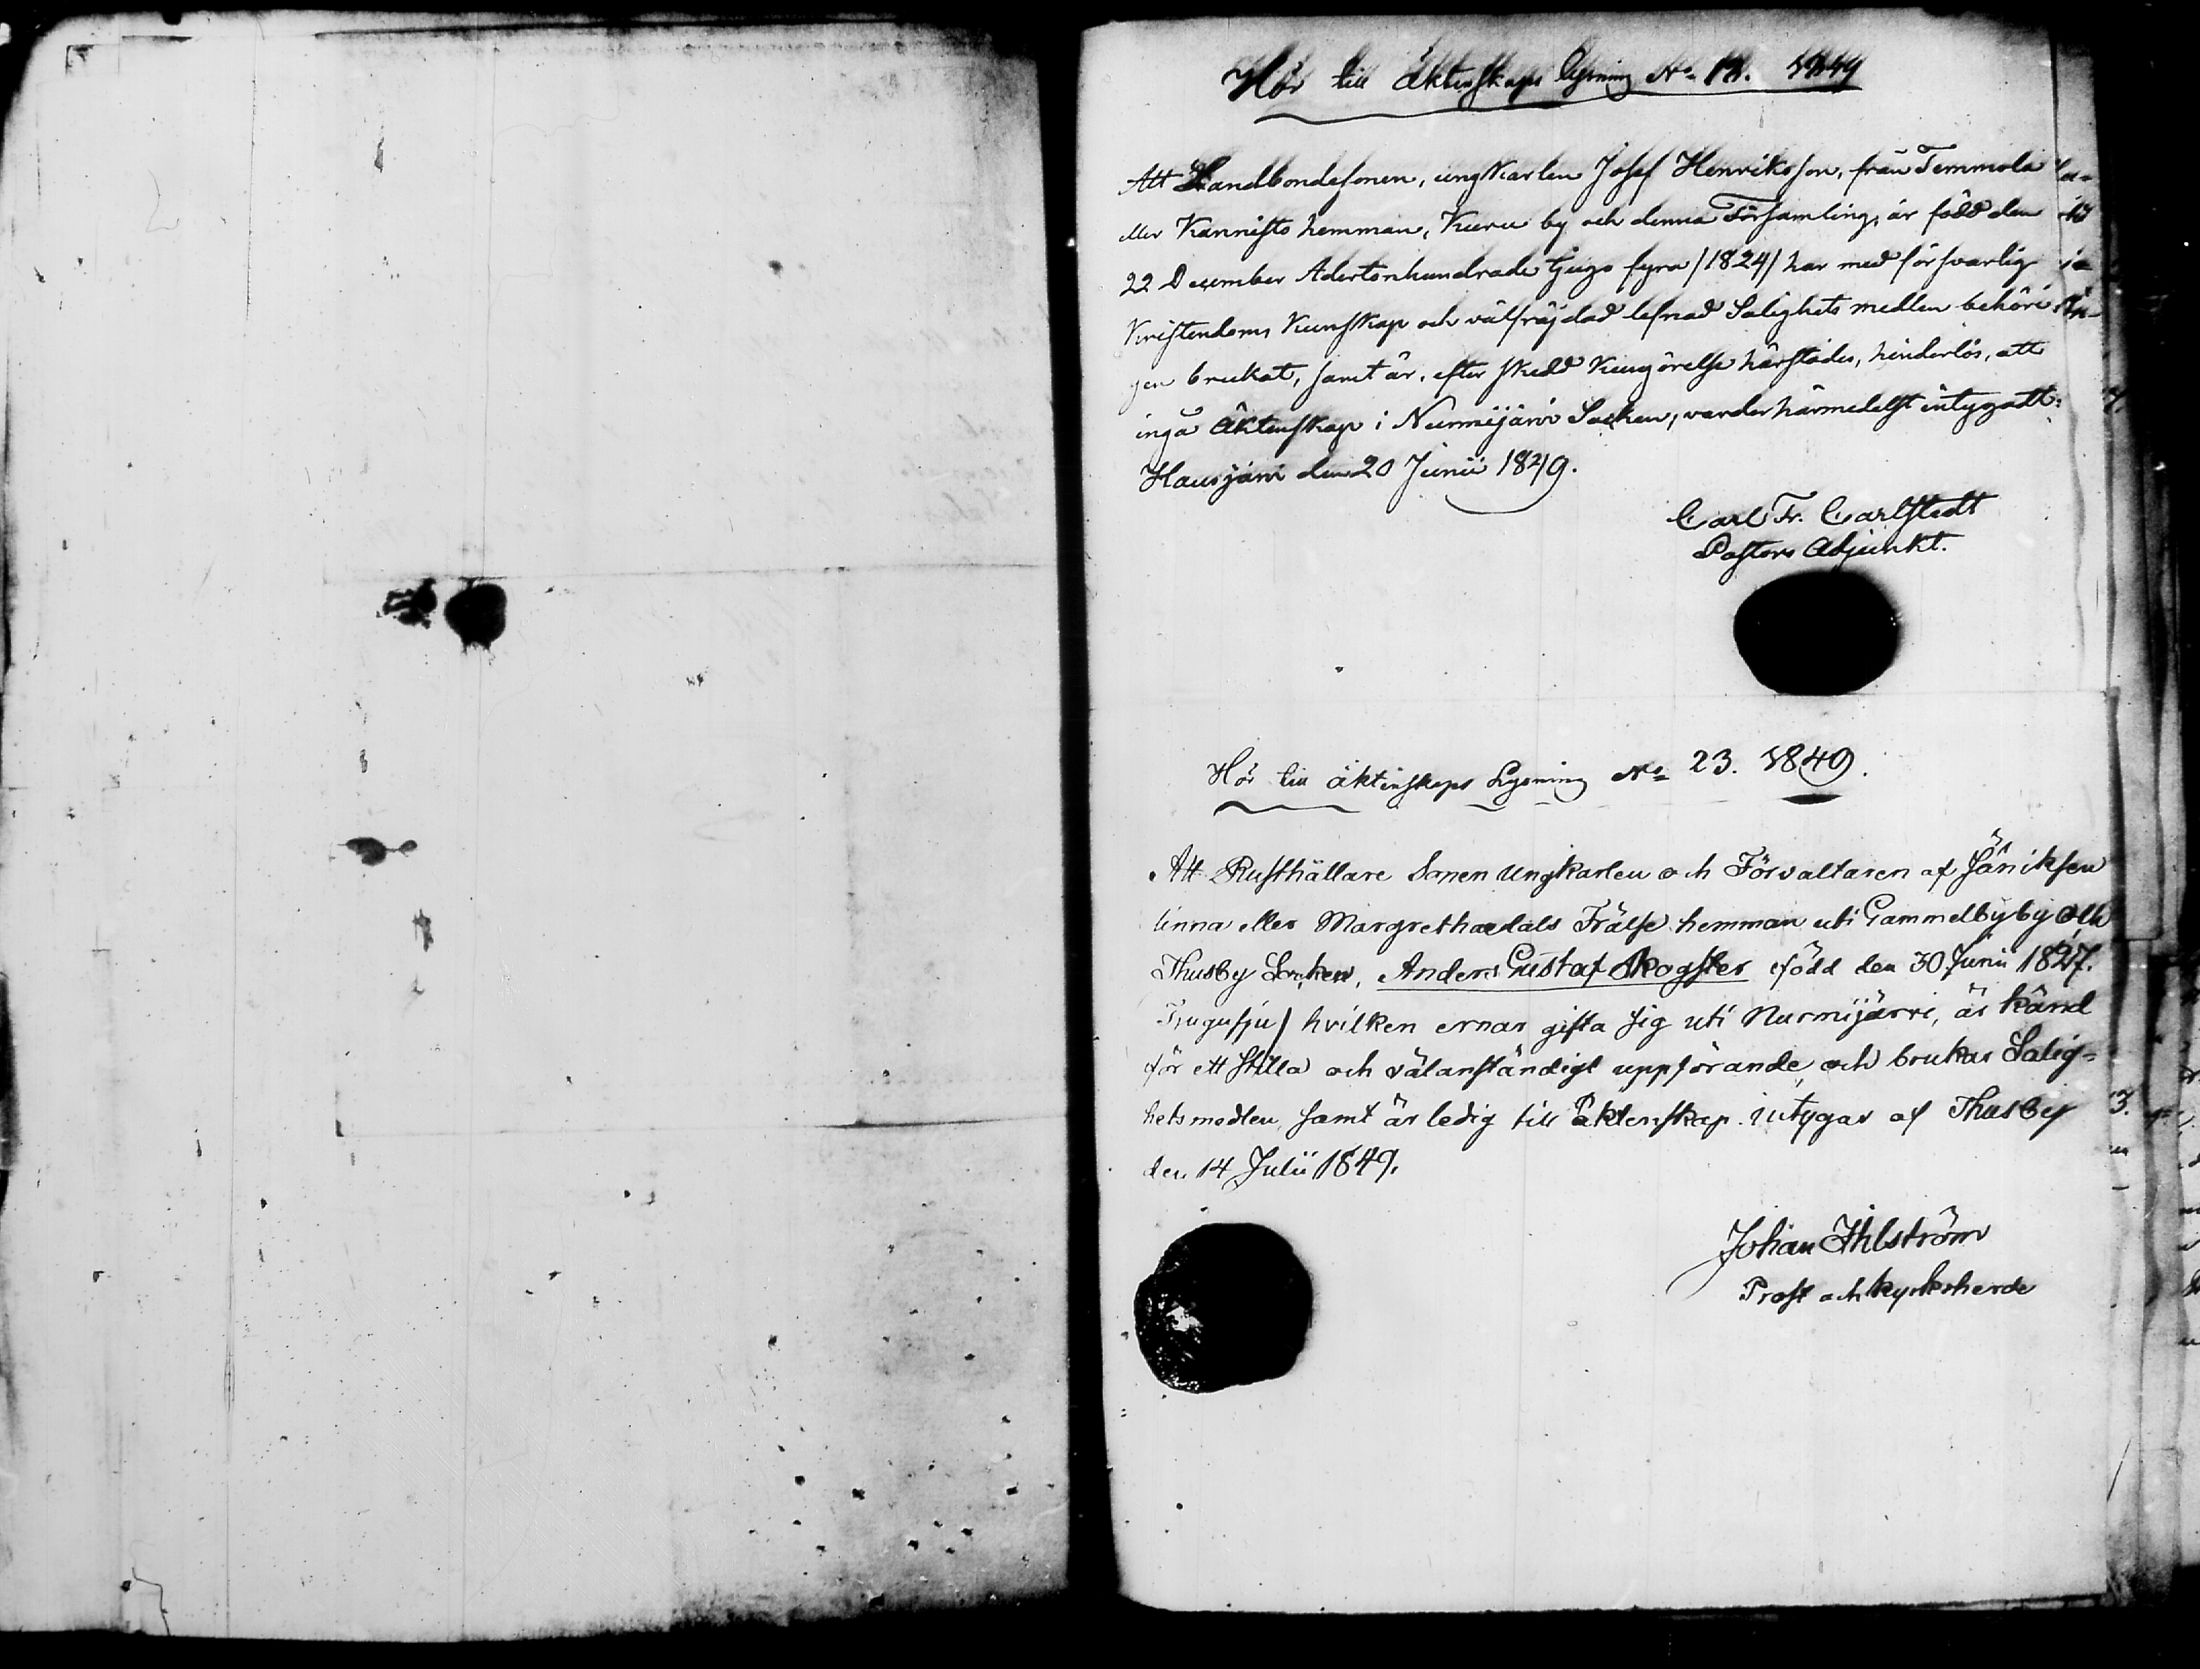 Hör till äktenskaps lysning No 18. 1849
Att Landbondesonen, ungkarlen Josef Henriksson, från Temmola
eller Kannisto hemman, Kuru by och denna Församling, är född den
22 December Adertonhundrade tjugo fyra /1824/ har med försvarlig
Kristendoms Kunskap och välfräjdad lefnad Salighets medlen behöri
gen brukat, samt är, efter skedd kungörelse härstädes, hinderlös, att
ingå Äktenskap i Nurmijärvi Socken, varder härmedelst intygadt:
Hausjärvi den 20 Junii 1849.
Carl Fr. Carlstedt
Pastors Adjunkt.
Hör till äktenskaps Lysning No 23. 1849.
Att Rusthållare Sonen Ungkarlen och Förvaltaren af Jäniksen
linna eller Margrethaedals Frälse hemman uti Gammelby by och
Thusby Socken, Anders Gustaf Skogster född den 30 Junii 1827.
Tjugusju/ hvilken ernar gifta sig uti Nurmijärvi, är känd
för ett stilla och välanständigt uppförande, och brukar Salig=
hetsmedlen samt är ledig till äktenskap. intygar af Thusby
den 14 Julii 1849.
Johan Ahlström
Prost och kyrkoherde